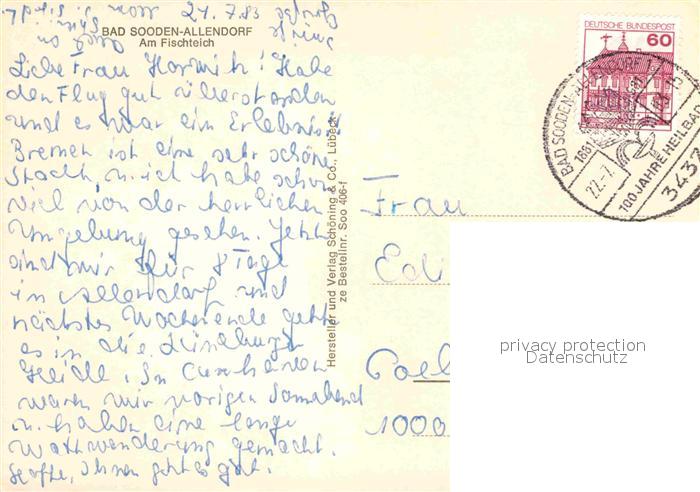 21.7.83
BAD SOODEN-ALLENDORF
Am Fischteich
Liebe Frau Horwitz! Habe
den Flug gut überstanden
und es war ein Erlebnis!
Bremen ist eine sehr schöne
Stadt, u. ich habe schon
viel von der herrlichen
Umgebung gesehen. Jetzt
sind wir für 8 Tage
in Allendorf und
nächstes Wochenende geht
es in die Lüneburger
Heide. In Cuxhaven
waren wir vorigen Sonnabend
u. haben eine lange
Wattwanderung gemacht.
Hoffe, Ihnen geht es gut.
Hersteller und Verlag Schöning & Co., Lübeck
ze Bestellnr. Soo 406-f
DEUTSCHE BUNDESPOST
60
BAD SOODEN-ALLENDORF 1
1881
22.-7.
100 JAHRE HEILBA
3437
Frau
Edi
1000
privacy protection
Datenschutz